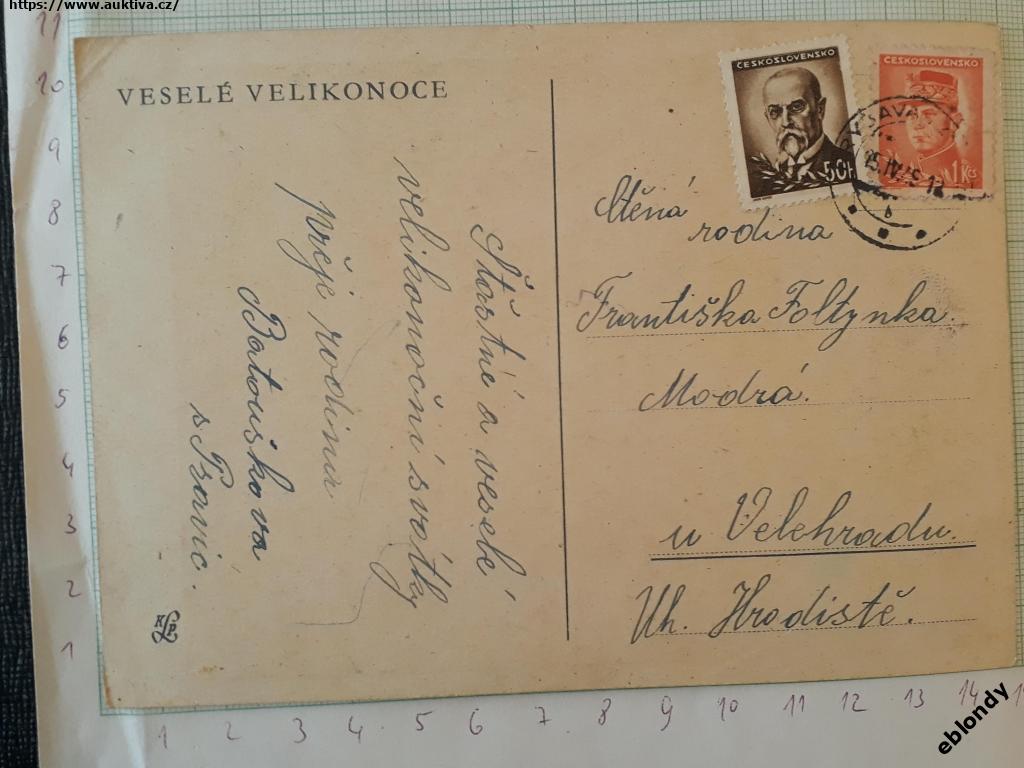 https://www.auktiva.cz/
VESELÉ VELIKONOCE
ČESKOSLOVENSKO
50H
ČESKOSLOVENSKO
1 Kčs
Šťastné a veselé
velikonoční svátky
přeje rodina
Batouškova
s Tsavic.
Ctěná
rodina
Františka Foltynka
Modrá.
u Velehradu.
Uh. Hrodistě.
11
10
9
8
7
6
5
4
3
2
1
1 2 3 4 5 6 7 8 9 10 11 12 13 14
eblondy